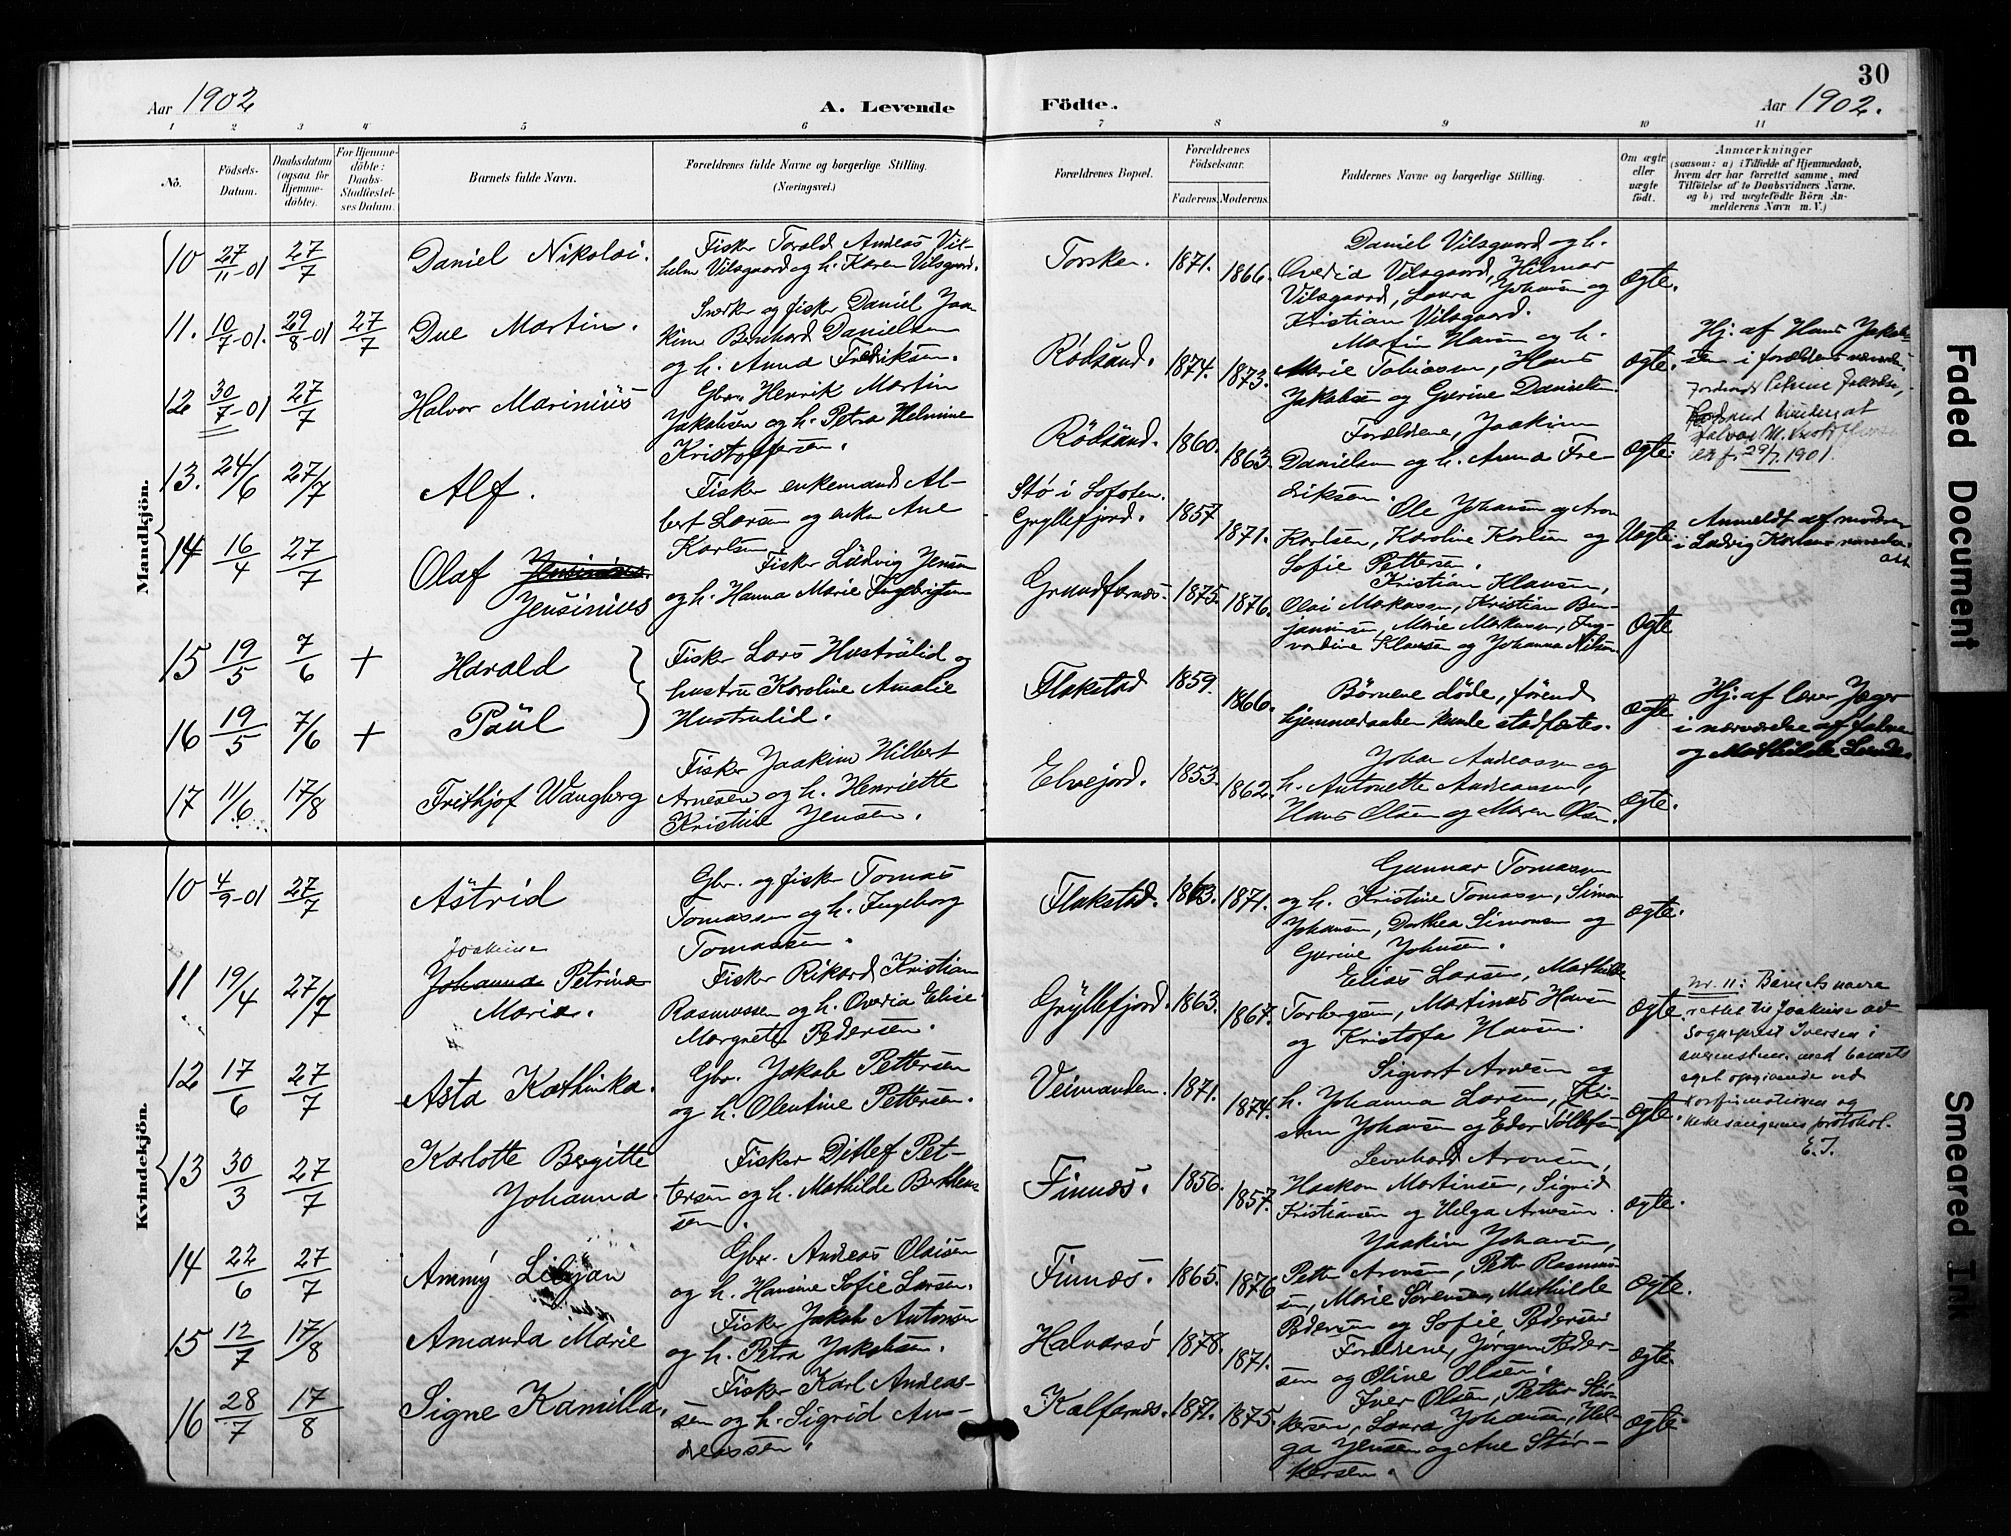 30
Aar 1902
A. Levende
Födte.
Aar 1902.
1 2 3 4 5 6 7 8 9 10 11
No.
Födsels-Datum.
Daabsdatum (ogsaa for Hjemme-döbte).
For Hjemme-döbte: Daabs-Stadfæstel-ses Datum.
Barnets fulde Navn.
Forældrenes fulde Navne og borgerlige Stilling.
(Næringsvei.)
Forældrenes Bopæl.
Forældrenes Födselsaar.
Faderens. Moderens.
Faddernes Navne og borgerlige Stilling.
Om ægte eller uægte födt.
Anmærkninger
(saasom: a) i Tilfælde af Hjemmedaab,
hvem der har forrettet samme, med
Tilföielse af to Daabsvidners Navne,
og b) ved uægtefödte Börn An-
melderens Navn m. V.)
Mandkjön.
10 27/11-01 27/7 Daniel Nikolai.
Fisker Torald Andreas Vil-
helm Vilsgaard og h. Karen Vilsgaard.
Torsken. 1871. 1866.
Daniel Vilsgaard og h.
Ovedia Vilsgaard, Hilmar
Vilsgaard, Laura Johansen og
Kristian Vilsgaard.
Ægte.
11. 10/7-01. 29/8-01 27/7 Due Martin.
Snedker og fisker Daniel Joa-
kim Bernhard Danielsen
og h. Anna Fredriksen.
Rödsand. 1874. 1873.
Martin Hansen og h.
Marie Tobiassen, Hans
Jakobsen og Gurine Danielsen
Ægte.
Hj. af Hans Jakob-
sen i forældrenes
12 30/7-01 27/7 Halvor Marinius
Gbr. Henrik Martin
Jakobsen og h. Petra Helmine
Kristoffersen.
Rödsand. 1860. 1863.
Forældrene, Joakim
Danielsen og h. Anna Fre-
driksen.
Ægte.
29/7 1901.
13. 24/6 27/7 Alf.
Fisker enkemand Al-
bert Larsen og enken Ane
Karlsen
Stø i Lofoten.
Gryllefjord. 1857 1871.
Ole Johansen og Aron
Karlsen, Karoline Karlsen og
Sofie Pettersen.
Uægte.
Anmeldt af moderen
i Ludvig Karlsens
14 16/4 27/7 Olaf Jensinius.
Jensinius
Fisker Ludvig Jensen
og h. Hanna Marie Ingebrigtsen
Grundfarnes. 1875. 1876.
Kristian Klausen,
Olai Markussen, Kristian Ben-
jaminsen, Marie Markussen, Ing-
vardine Klausen og Johanna Nilsen
Ægte
15 19/5 7/6 + Harald
16 19/5 7/6 + Paul
Fisker Lars Hustrulid og
hustru Karoline Amalie
Hustrulid.
Flakstad 1859. 1866.
Børnene døde, førend
hjemmedaaben kunde stadfæstes.
Ægte
Hj. af lærer Jæger
i nærværelse af faderen
og Mathilde
17 11/6 17/8 Frithjof Wangberg
Fisker Joakim Hilbert
Arnesen og h. Henriette
Kristine Jensen.
Elvejord. 1853. 1862.
Johan Andreassen og
h. Antonette Andreassen,
Hans Olsen og Maren Olsen.
Ægte.
Kvindekjön.
10 4/9-01 27/7 Astrid
Gbr. og fisker Tomas
Tomassen og h. Ingeborg
Tomassen.
Flakstad. 1863. 1871.
Gunnar Tomassen
og h. Kristine Tomassen, Simon
Johansen, Dorthea Simonsen og
Gurine Johnsen.
Ægte.
Joakime
11 19/4 27/7 Johanna Petrine
Marie.
Fisker Rikard Kristian
Rasmussen og h. Overia Elise
Margrete Pedersen.
Gryllefjord. 1863. 1867.
Elias Larsen, Mathilde
Torbergsen, Martinus Hansen
og Kristofa Hansen.
Ægte.
Nr. 11: Barnets navn
rettet til Joakime av
Sogneprest Iversen i
overensstem. med barnets
eget opgivende ved
konfirmationen og
kirkesangerens protokol.
E.I.
12 17/6 27/7 Asta Kathinka.
Gbr. Jakob Pettersen
og h. Olentine Pettersen.
Veimanden. 1871. 1874.
Sigvart Arnesen og
h. Johanna Larsen,
Johansen og Edor Tollefsen
Ægte.
13 30/3 27/7 Karlotte Bergitte
Johanna.
Fisker Ditlef Pet-
tersen og h. Mathilde Berthen-
sen.
Finnæs. 1856. 1857.
Leonhard Aronsen,
Haakon Martinsen, Sigrid
Kristiansen og Helga Arnesen.
Ægte.
14 22/6 27/7 Ammy Liljan
Gbr. Andreas Olaisen
og h. Hansine Sofie Larsen.
Finnæs. 1865. 1876
Joakim Johansen,
Petter Aronsen, Petter Rasmus-
sen, Marie Sørensen, Mathilde
Pedersen og Sofie Pedersen
Ægte.
15 12/7 17/8 Amanda Marie
Fisker Jakob Antonsen
og h. Petra Jakobsen.
Halvarsø 1878. 1871.
Forældrene, Jørgen Peder-
sen og Oline Olsen.
Ægte.
16 28/7 17/8 Signe Kamilla.
Fisker Karl Andreas-
sen og h. Sigrid An-
dreassen.
Kalfarnes. 1875.
Iver Olsen, Petter Stør-
kersen, Laura Johansen, Hel-
ga Jensen og Ane Stør-
kersen.
Ægte.
Faded Document
Smeared Ink